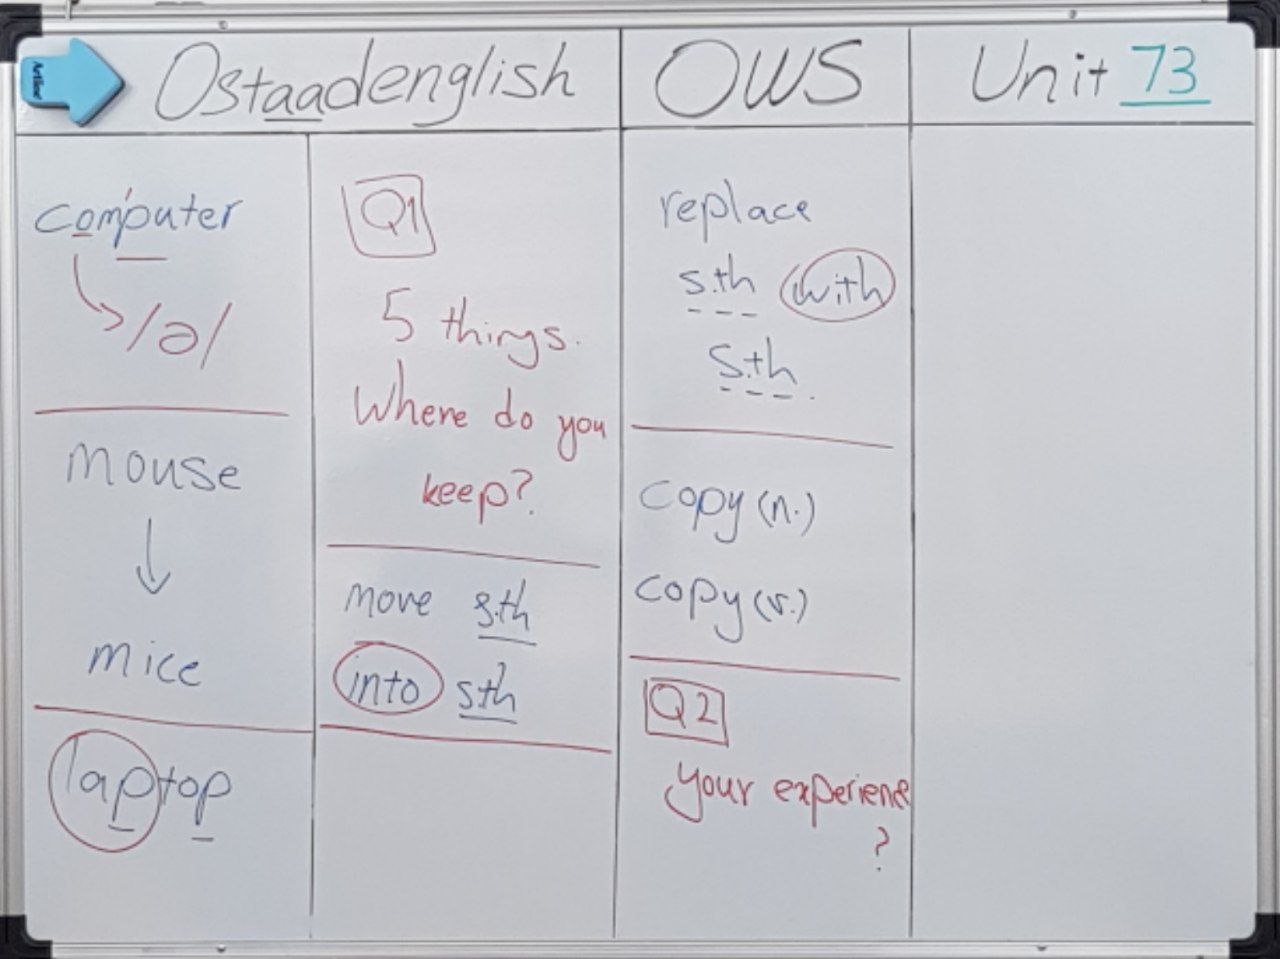 Artline
Ostaadenglish
OWS
Unit 73
computer
/ə/
mouse
mice
laptop
Q1
5 things.
Where do you
keep?
move s.th
into s.th
replace
s.th with
s.th.
copy (n.)
copy (v.)
Q2
your experience
?